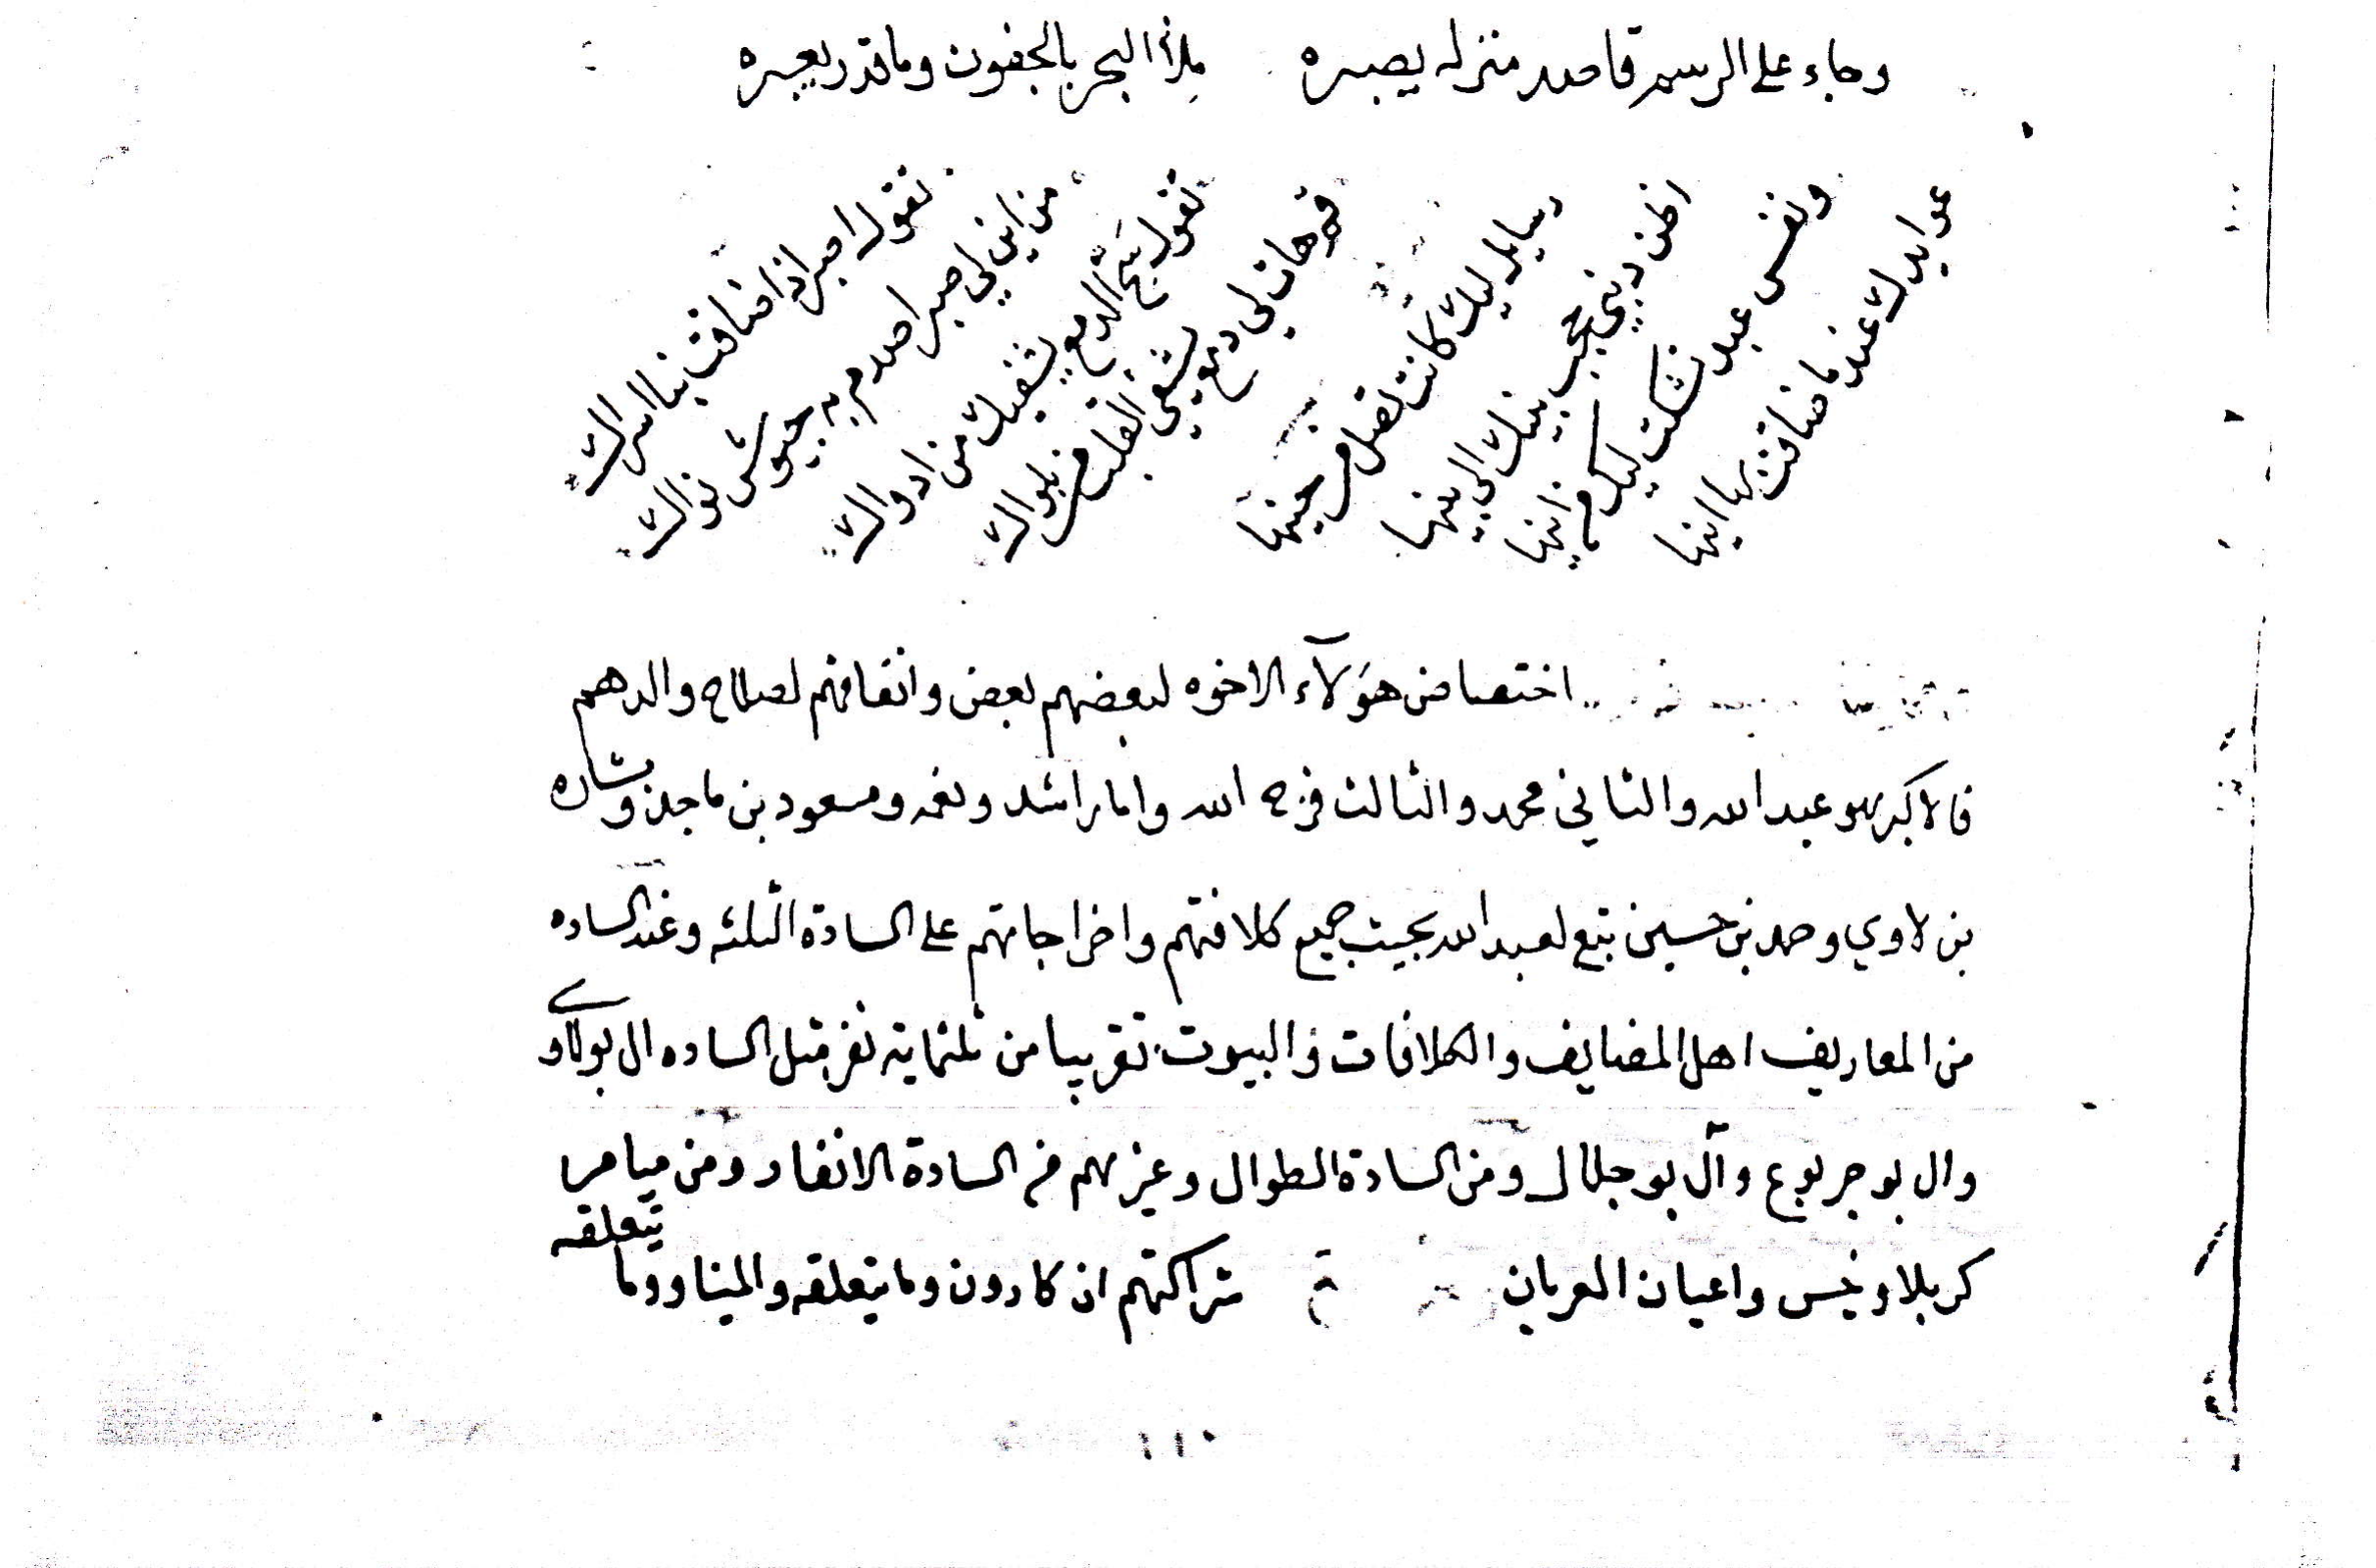 وجاء على الرسم قاصد منزله يصبره ملأ البحر بالجفون وما قدر يعبره
عوايدك عندما ضاقت بنا اينها
ونفس عبد شكت ليكم اينها
اظن ديني بينك الي بينها
رسايل ليك كانت تصل من حينها
قم هات لي دمع يشفي القلب من بلواك
تقول سَح الدمع يشفيك من ادواك
من اين لي صبر اصدم به جيوش نواك
تقول اصبر اذا ضاقت بنا اسراك
اختصاص هؤلآء الاخوه لبعضهم بعض واتفاقهم لصلاح والدهم
فالاكبر هو عبد الله والثاني محمد والثالث فرج الله واما راشد ونعمه ومسعود بن ماجد وشاره
بن لاوي وحمد بن حسين تبع لعبد الله بحيث جميع كلافتهم واخراجاتهم على السادة الثلثه وعند الساده
من المعاريف اهل المضايف والكلافات والبيوت تقريبا من ثلثماية نفر مثل الساده ال بولاوي
وال بو جربوع وآل بو جلال ومن السادة الطوال وغيرهم من السادة الانفار ومن ميامر
كربلا وخيس واعيان العربان شراكتهم ان كارون وما يتعلقه والميناو وما يتعلقه
١١٠